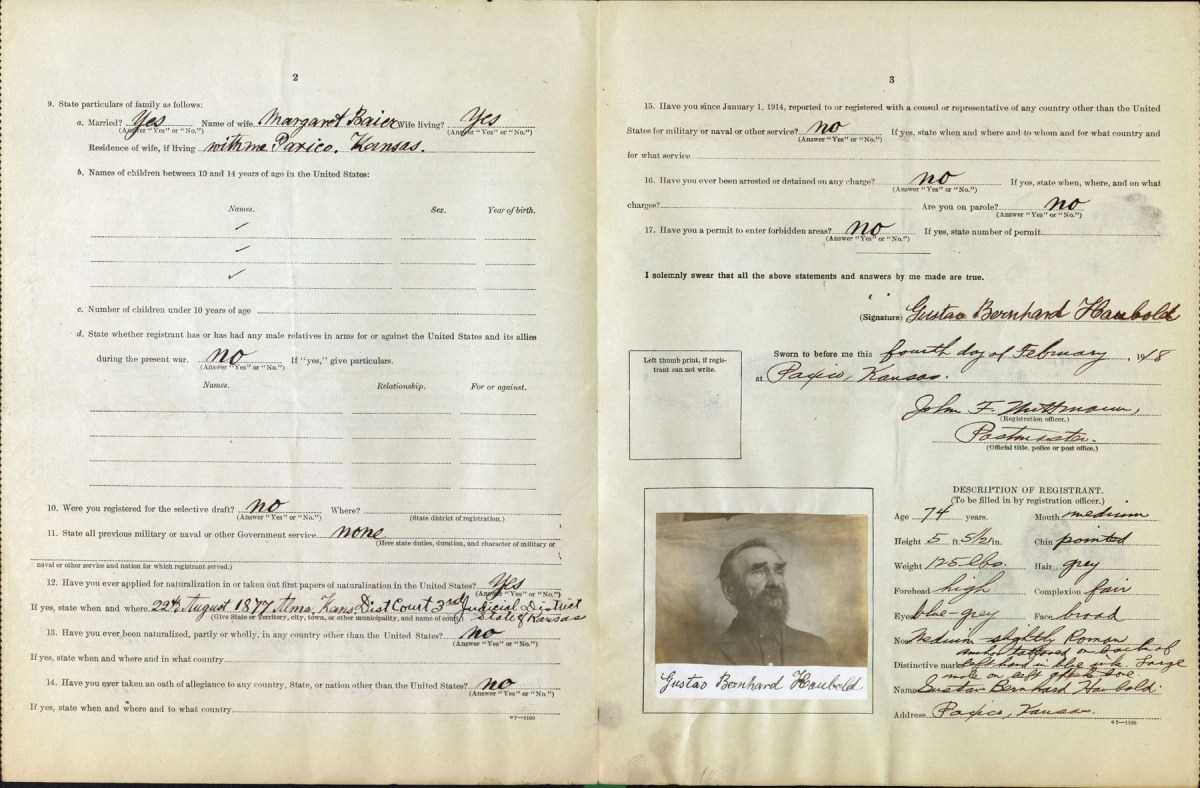 2
9. State particulars of family as follows:
a. Married? Yes Name of wife Margaret Baier Wife living? Yes
(Answer "Yes" or "No.") (Answer "Yes" or "No.")
Residence of wife, if living with me Paxico, Kansas.
b. Names of children between 10 and 14 years of age in the United States:
Names. Sex. Year of birth.
c. Number of children under 10 years of age
d. State whether registrant has or has had any male relatives in arms for or against the United States and its allies
during the present war. no If "yes," give particulars.
(Answer "Yes" or "No.")
Names. Relationship. For or against.
10. Were you registered for the selective draft? no Where?
(Answer "Yes" or "No.") (State district of registration.)
11. State all previous military or naval or other Government service none
(Here state duties, duration, and character of military or
naval or other service and nation for which registrant served.)
12. Have you ever applied for naturalization in or taken out first papers of naturalization in the United States? Yes
(Answer "Yes" or "No.")
If yes, state when and where 22th August 1877 Alma, Kans Dist Court 3rd Judicial District
(Give State or Territory, city, town, or other municipality, and name of court) State of Kansas
13. Have you ever been naturalized, partly or wholly, in any country other than the United States? no
(Answer "Yes" or "No.")
If yes, state when and where and in what country
14. Have you ever taken an oath of allegiance to any country, State, or nation other than the United States? no
(Answer "Yes" or "No.")
If yes, state when and where and to what country
67—1100
3
15. Have you since January 1, 1914, reported to or registered with a consul or representative of any country other than the United
States for military or naval or other service? no If yes, state when and where and to whom and for what country and
(Answer "Yes" or "No.")
for what service
16. Have you ever been arrested or detained on any charge? no If yes, state when, where, and on what
(Answer "Yes" or "No.")
charges? Are you on parole? no
(Answer "Yes" or "No.")
17. Have you a permit to enter forbidden areas? no If yes, state number of permit
(Answer "Yes" or "No.")
I solemnly swear that all the above statements and answers by me made are true.
(Signature) Gustav Bernhard Haubold
Left thumb print, if regis-
trant can not write.
Sworn to before me this fourth day of February, 1918
at Paxico, Kansas.
John F.
(Registration officer.)
Postmaster.
(Official title, police or post office.)
DESCRIPTION OF REGISTRANT.
(To be filled in by registration officer.)
Age 74 years. Mouth medium
Height 5 ft 5 1/2 in. Chin pointed
Weight 125 lbs. Hair grey
Forehead high Complexion fair
Eyes blue-grey Face broad
Nose Medium slightly Roman
anchor tattooed on back of
Distinctive marks left hand in blue ink. Large
mole on left
Name Gustav Bernhard Haubold.
Address Paxico, Kansas.
67—1100
Gustav Bernhard Haubold